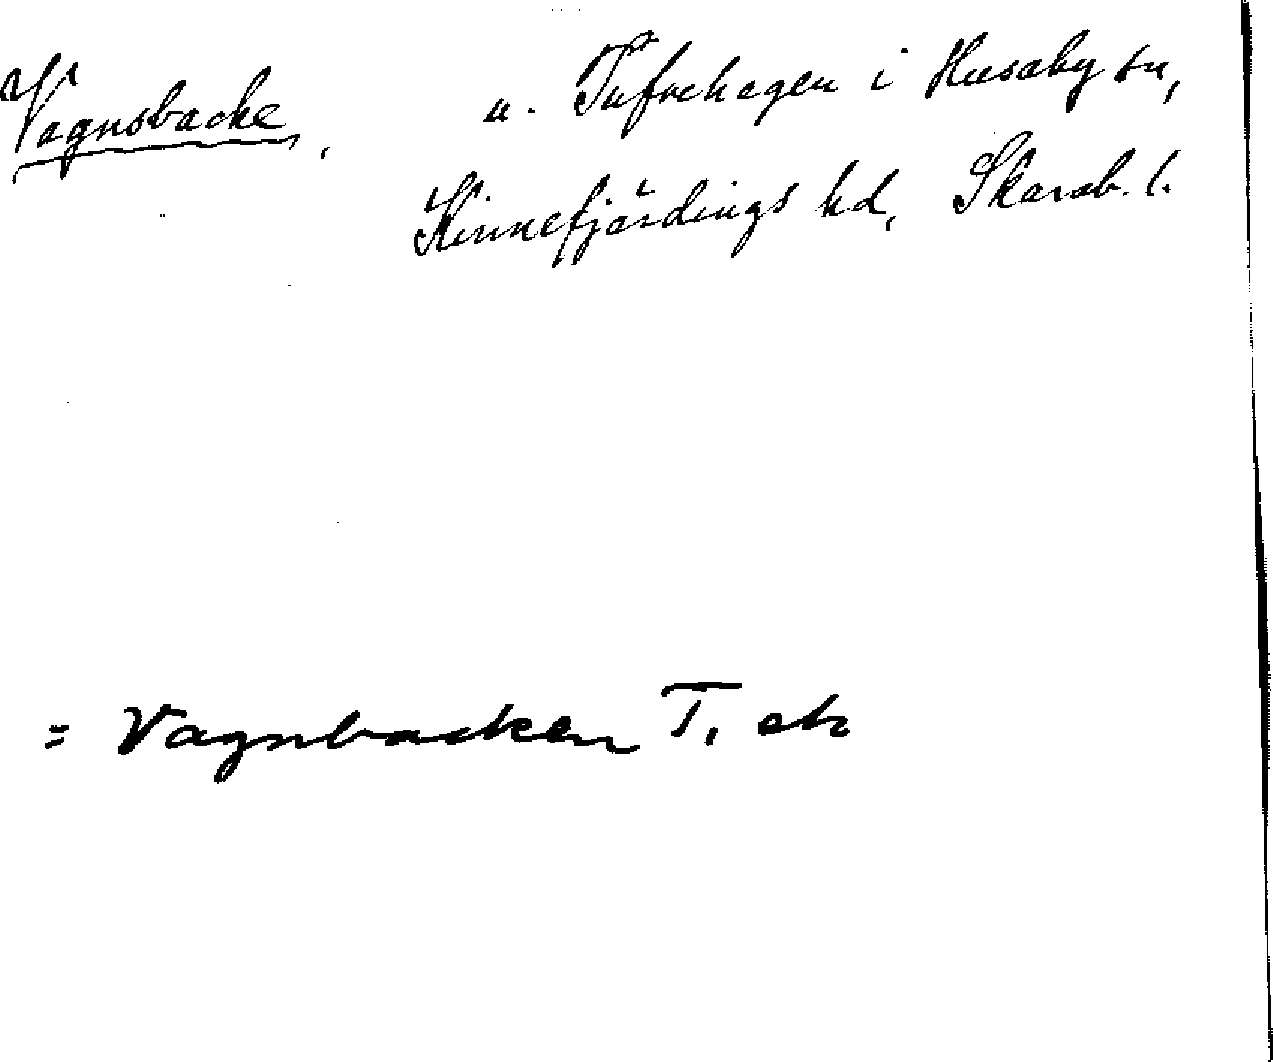 Vagnsbacke, u. Tufvehagen i Husaby sn,
Kinnefjärdings hd, Skarab. l.
= Vagnbacken T. ek